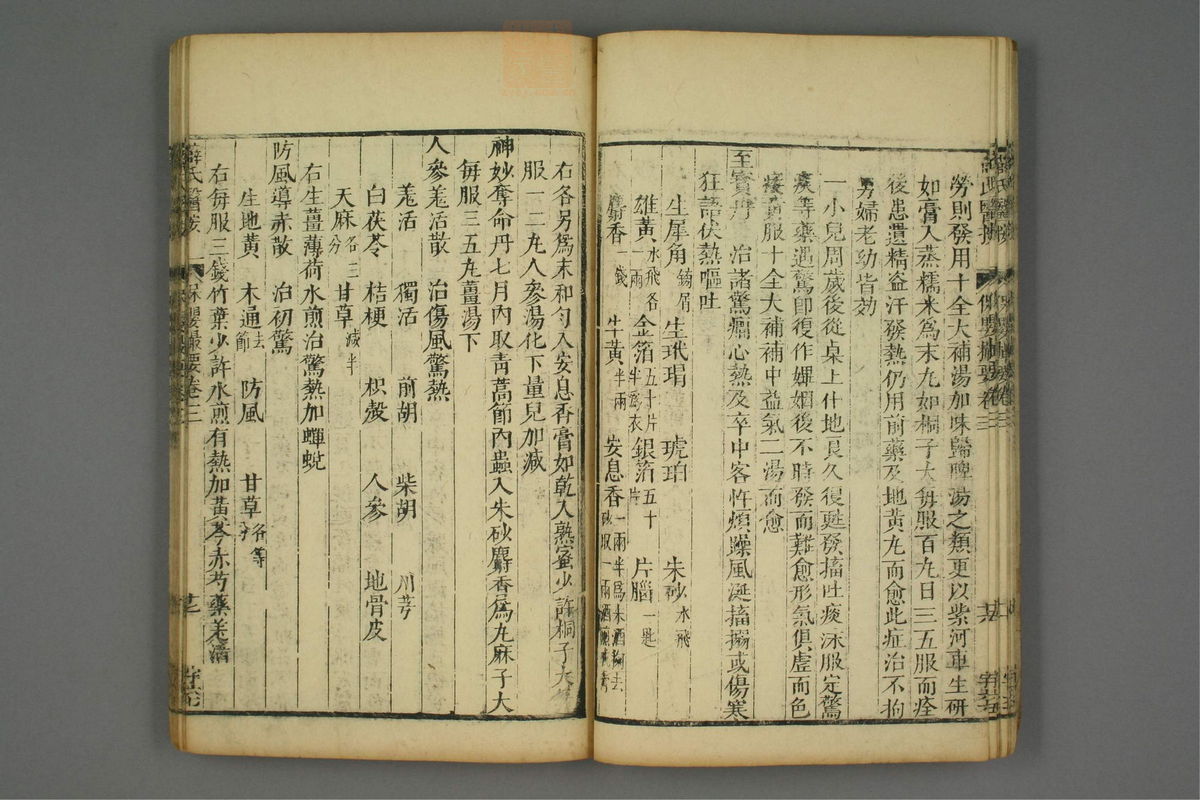 勞則發用十全大補湯加味歸脾湯之類更以紫河車生研
如膏入蒸糯米為末丸如桐子大每服百丸日三五服而痊
後患遺精盜汗發熱仍用前藥及地黃丸而愈此症治不拘
男婦老幼皆効
一小兒周歲後從桌上仆地良久復甦發搐吐痰沫服定驚
痰等藥遇驚即復作嬋婣後不時發而難愈形氣俱虛而色
痿黃服十全大補補中益氣二湯而愈
至寶丹 治諸驚癎心熱及卒中客忤煩躁風涎搐搦或傷寒
狂語伏熱嘔吐
生犀角鎊屑 生玳瑁 琥珀 朱砂水飛
雄黃水飛各一兩 金箔五十片半為衣 銀箔五十片 片腦一匙
麝香一錢 牛黃半兩 安息香一兩半為末酒去砂取一兩酒
右各另為末和勻入安息香膏如乾入熟蜜少許桐子大
服一二丸人參湯化下量兒加減
神妙奪命丹七月內取青蒿節內蟲入朱砂麝香為丸麻子大
每服三五丸薑湯下
人參羗活散 治傷風驚熱
羗活 獨活 前胡 柴胡 川芎
白茯苓 桔梗 枳殼 人參 地骨皮
天麻各三分 甘草減半
右生薑薄荷水煎治驚熱加蟬蛻
防風導赤散 治初驚
生地黃 木通去節 防風 甘草各等分
右每服三錢竹葉少許水煎有熱加黃芩赤芍藥羗活
薛氏醫按 保嬰撮要卷三